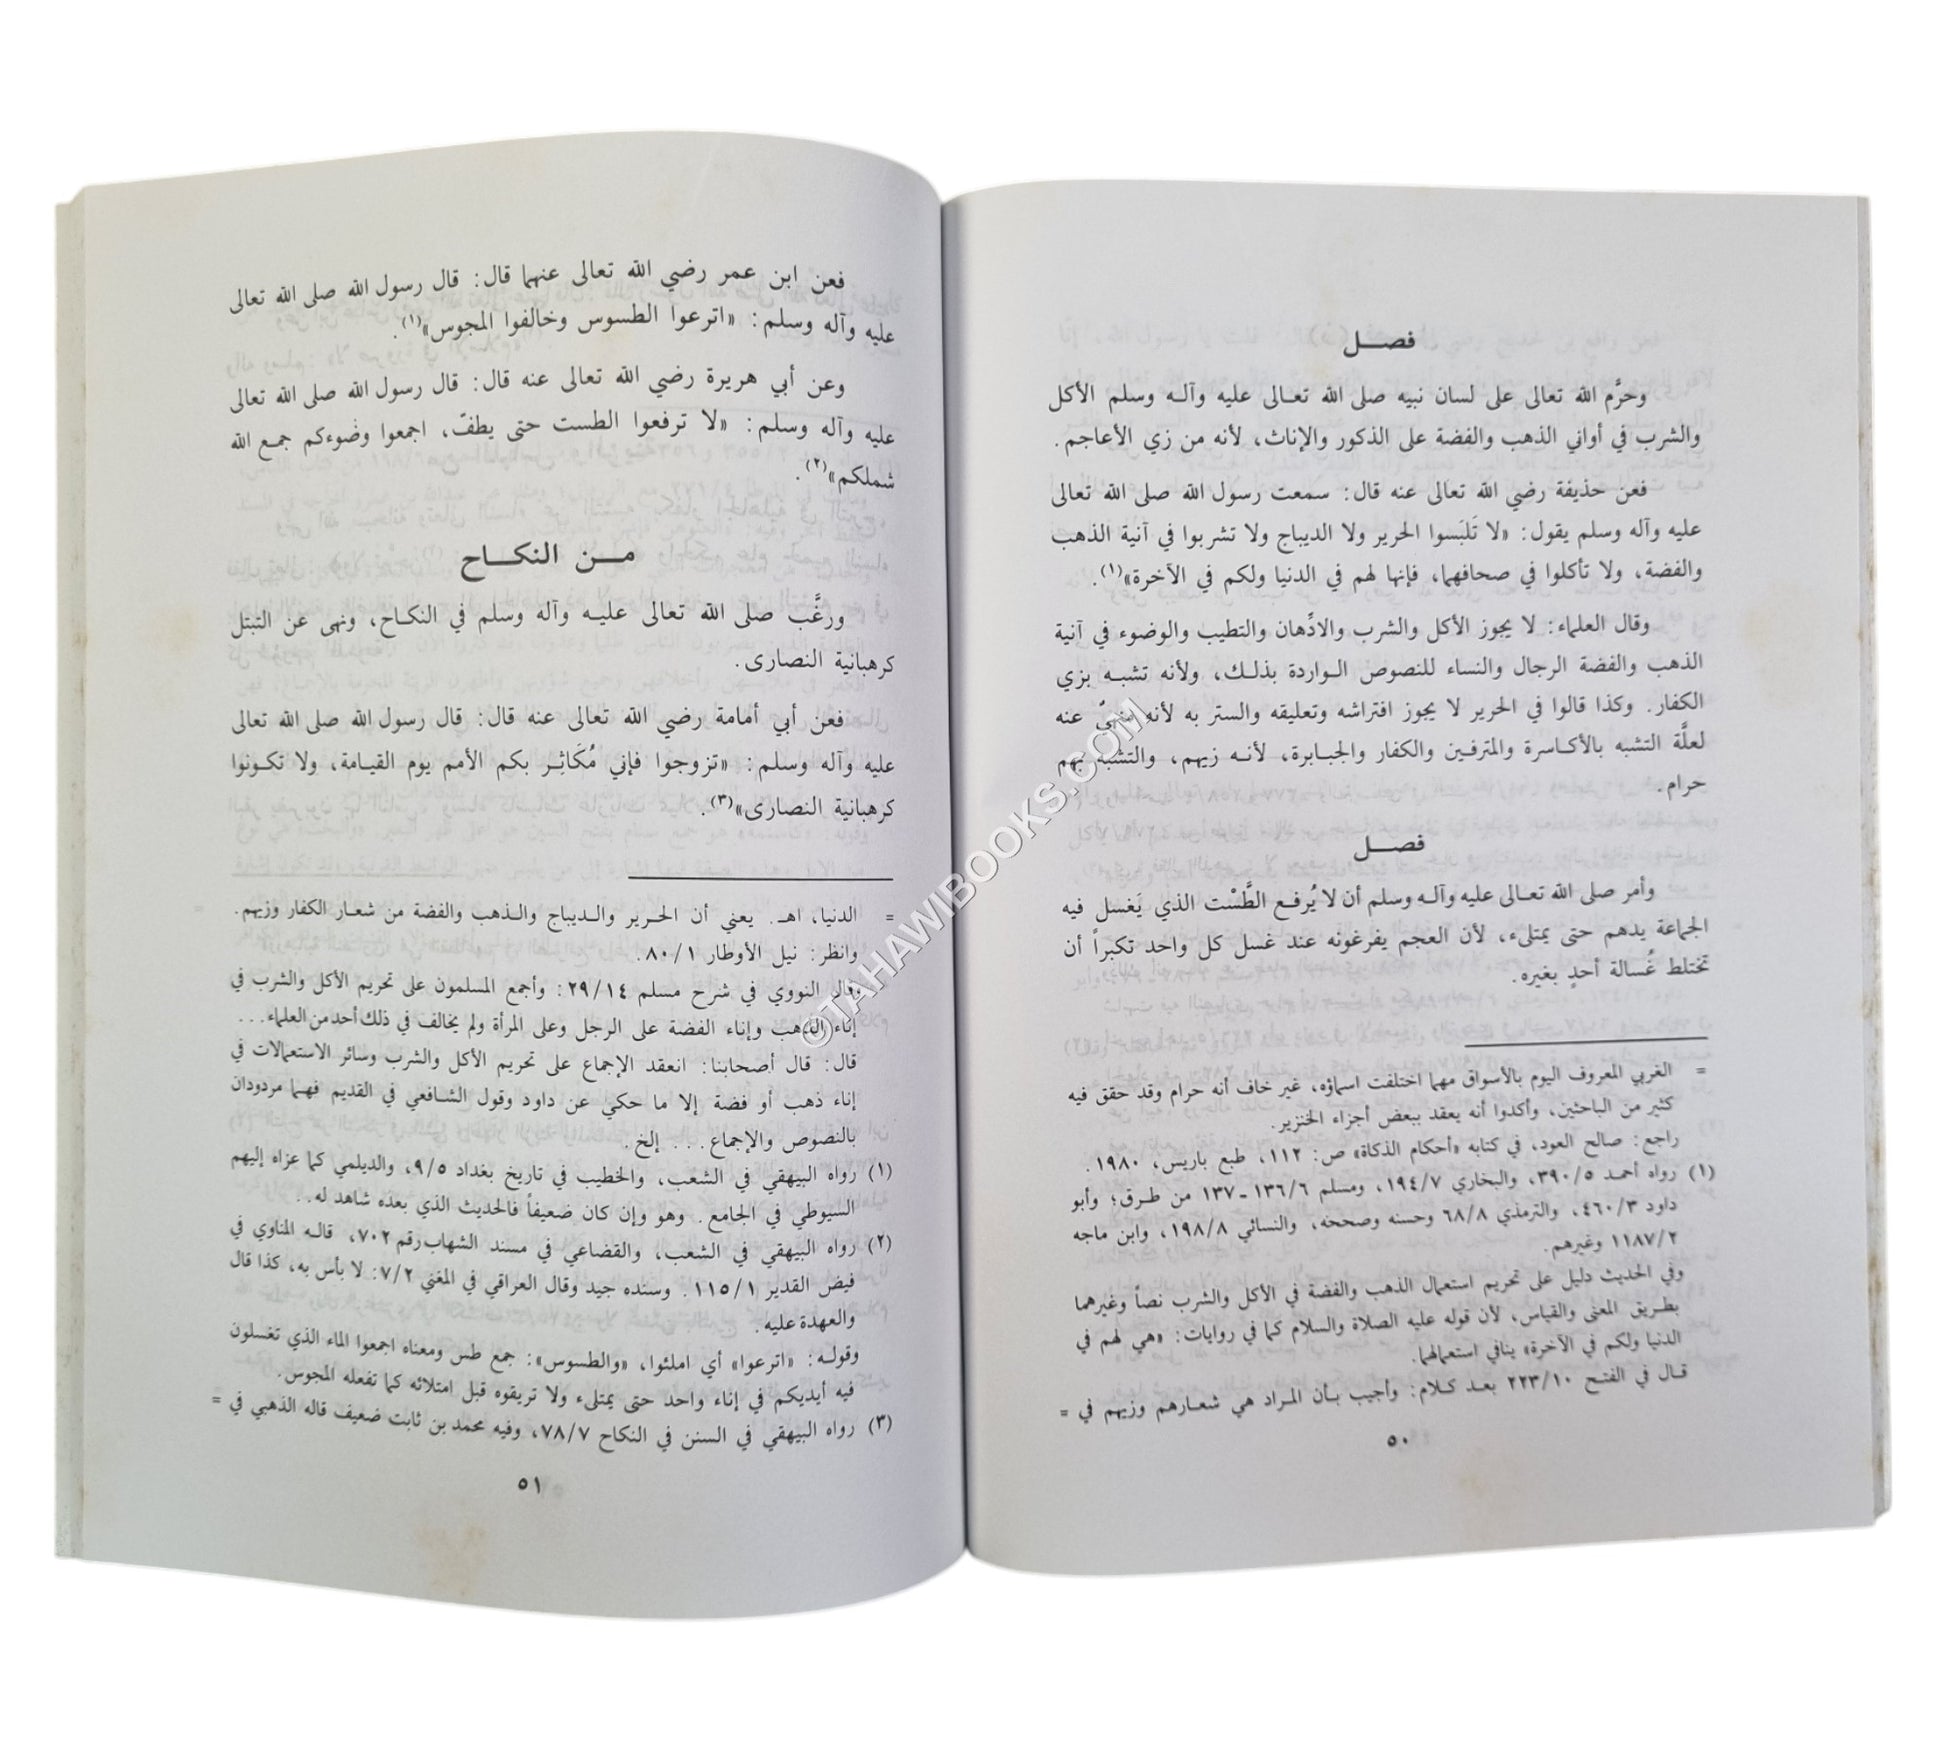 فصـــل
وحرَّم الله تعالى على لسان نبيه صلى الله تعـالى عليه وآلـه وسلم الأكل
والشرب في أواني الذهب والفضة على الذكور والإناث، لأنه من زي الأعاجم.
فعن حذيفة رضي الله تعالى عنه قال: سمعت رسول الله صلى الله تعالى
عليه وآله وسلم يقول: «لا تَلبَسوا الحرير ولا الديباج ولا تشربوا في آنية الذهب
والفضة، ولا تأكلوا في صحافهما، فإنها لهم في الدنيا ولكم في الآخرة»(١).
وقال العلماء: لا يجوز الأكل والشرب والادِّهان والتطيب والوضوء في آنية
الذهب والفضة الرجال والنساء للنصوص الـواردة بذلـك، ولأنه تشبـه بزي
الكفار. وكذا قالوا في الحرير لا يجوز افتراشه وتعليقه والستر به لأنه منهيّ عنه
لعلَّة التشبه بالأكـاسرة والمترفـين والكفار والجبـابرة، لأنـه زيهم، والتشبه بهم
حرام.
فصـــل
وأمر صلى الله تعـالى عليه وآلـه وسلم أن لا يُرفـع الطَّسْت الذي يَغسل فيه
الجماعة يدهم حتى يمتلىء، لأن العجم يفرغونه عند غسل كل واحد تكبراً أن
تختلط غُسالة أحدٍ بغيره.
= الغربي المعروف اليوم بالأسواق مهما اختلفت اسماؤه، غير خاف أنه حرام وقد حقق فيه
كثير من الباحثين، وأكدوا أنه يعقد ببعض أجزاء الخنزير.
راجع: صالح العود، في كتابه «أحكام الذكاة» ص: ١١٢، طبع باريس، ١٩٨٠.
(١) رواه أحمـد ٥/ ٣٩٠، والبخاري ٧/ ١٩٤، ومسلم ٦/ ١٣٦ - ١٣٧ من طـرق؛ وأبو
داود ٣/ ٤٦٠، والترمذي ٨/ ٦٨ وحسنه وصححه، والنسائي ٨/ ١٩٨، وابن ماجه
٢/ ١١٨٧ وغيرهم.
وفي الحديث دليل على تحريم استعمال الذهب والفضة في الأكل والشرب نصاً وغيرهما
بطـريق المعنى والقياس، لأن قوله عليه الصلاة والسلام كما في روايات: «هي لهم في
الدنيا ولكم في الآخرة» ينافي استعمالها.
قـال في الفتـح ١٠/ ٢٢٣ بعـد كـلام: وأجيب بـأن المـراد هي شعـارهم وزيهم في =
٥٠
فعن ابن عمر رضي الله تعالى عنهما قال: قال رسول الله صلى الله تعالى
عليه وآله وسلم: «اترعوا الطسوس وخالفوا المجوس»(١).
وعن أبي هريرة رضي الله تعالى عنه قال: قال رسول الله صلى الله تعالى
عليه وآله وسلم: «لا ترفعوا الطست حتى يطفّ، اجمعوا وضوءكم جمـع الله
شملكم»(٢).
مـــن النكـــاح
ورغَّـب صلى الله تعالى عليـه وآله وسلم في النكـاح، ونهى عن التبتل
كرهبانية النصارى.
فعن أبي أمامة رضي الله تعالى عنه قال: قال رسول الله صلى الله تعالى
عليه وآله وسلم: «تزوجوا فإني مُكَاثِـر بكم الأمم يوم القيـامة، ولا تكـونوا
كرهبانية النصارى»(٣).
= الدنيا، اهـ. يعني أن الحـرير والـديباج والـذهب والفضة من شعـار الكفار وزيهم.
وانظر: نيل الأوطار ١/ ٨٠.
وقال النووي في شرح مسلم ١٤/ ٢٩: وأجمع المسلمون على تحريم الأكل والشرب في
إناء الذهب وإناء الفضة على الرجل وعلى المرأة ولم يخالف في ذلك أحد من العلماء...
قال: قال أصحابنا: انعقد الإجماع على تحريم الأكل والشرب وسائر الاستعمالات في
إناء ذهب أو فضة إلا ما حكي عن داود وقول الشـافعي في القديم فهـما مردودان
بالنصوص والإجماع... إلخ.
(١) رواه البيهقي في الشعب، والخطيب في تاريخ بغداد ٥/ ٩، والديلمي كما عزاه إليهم
السيوطي في الجامع. وهو وإن كان ضعيفاً فالحديث الذي بعده شاهد له..
(٢) رواه البيهقي في الشعب، والقضاعي في مسند الشهاب رقم ٧٠٢، قالـه المناوي في
فيض القدير ١/ ١١٥. وسنده جيد وقال العراقي في المغني ٢/ ٧: لا بأس به، كذا قال
والعهدة عليه.
وقولـه: «اترعوا» أي املئوا، «والطسوس»: جمع طس ومعناه اجمعوا الماء الذي تغسلون
فيه أيديكم في إناء واحد حتى يمتلىء ولا تريقوه قبل امتلائه كما تفعله المجوس.
(٣) رواه البيهقي في السنن في النكاح ٧/ ٧٨، وفيه محمد بن ثابت ضعيف قاله الذهبي في =
٥١
©TAHAWIBOOKS.COM